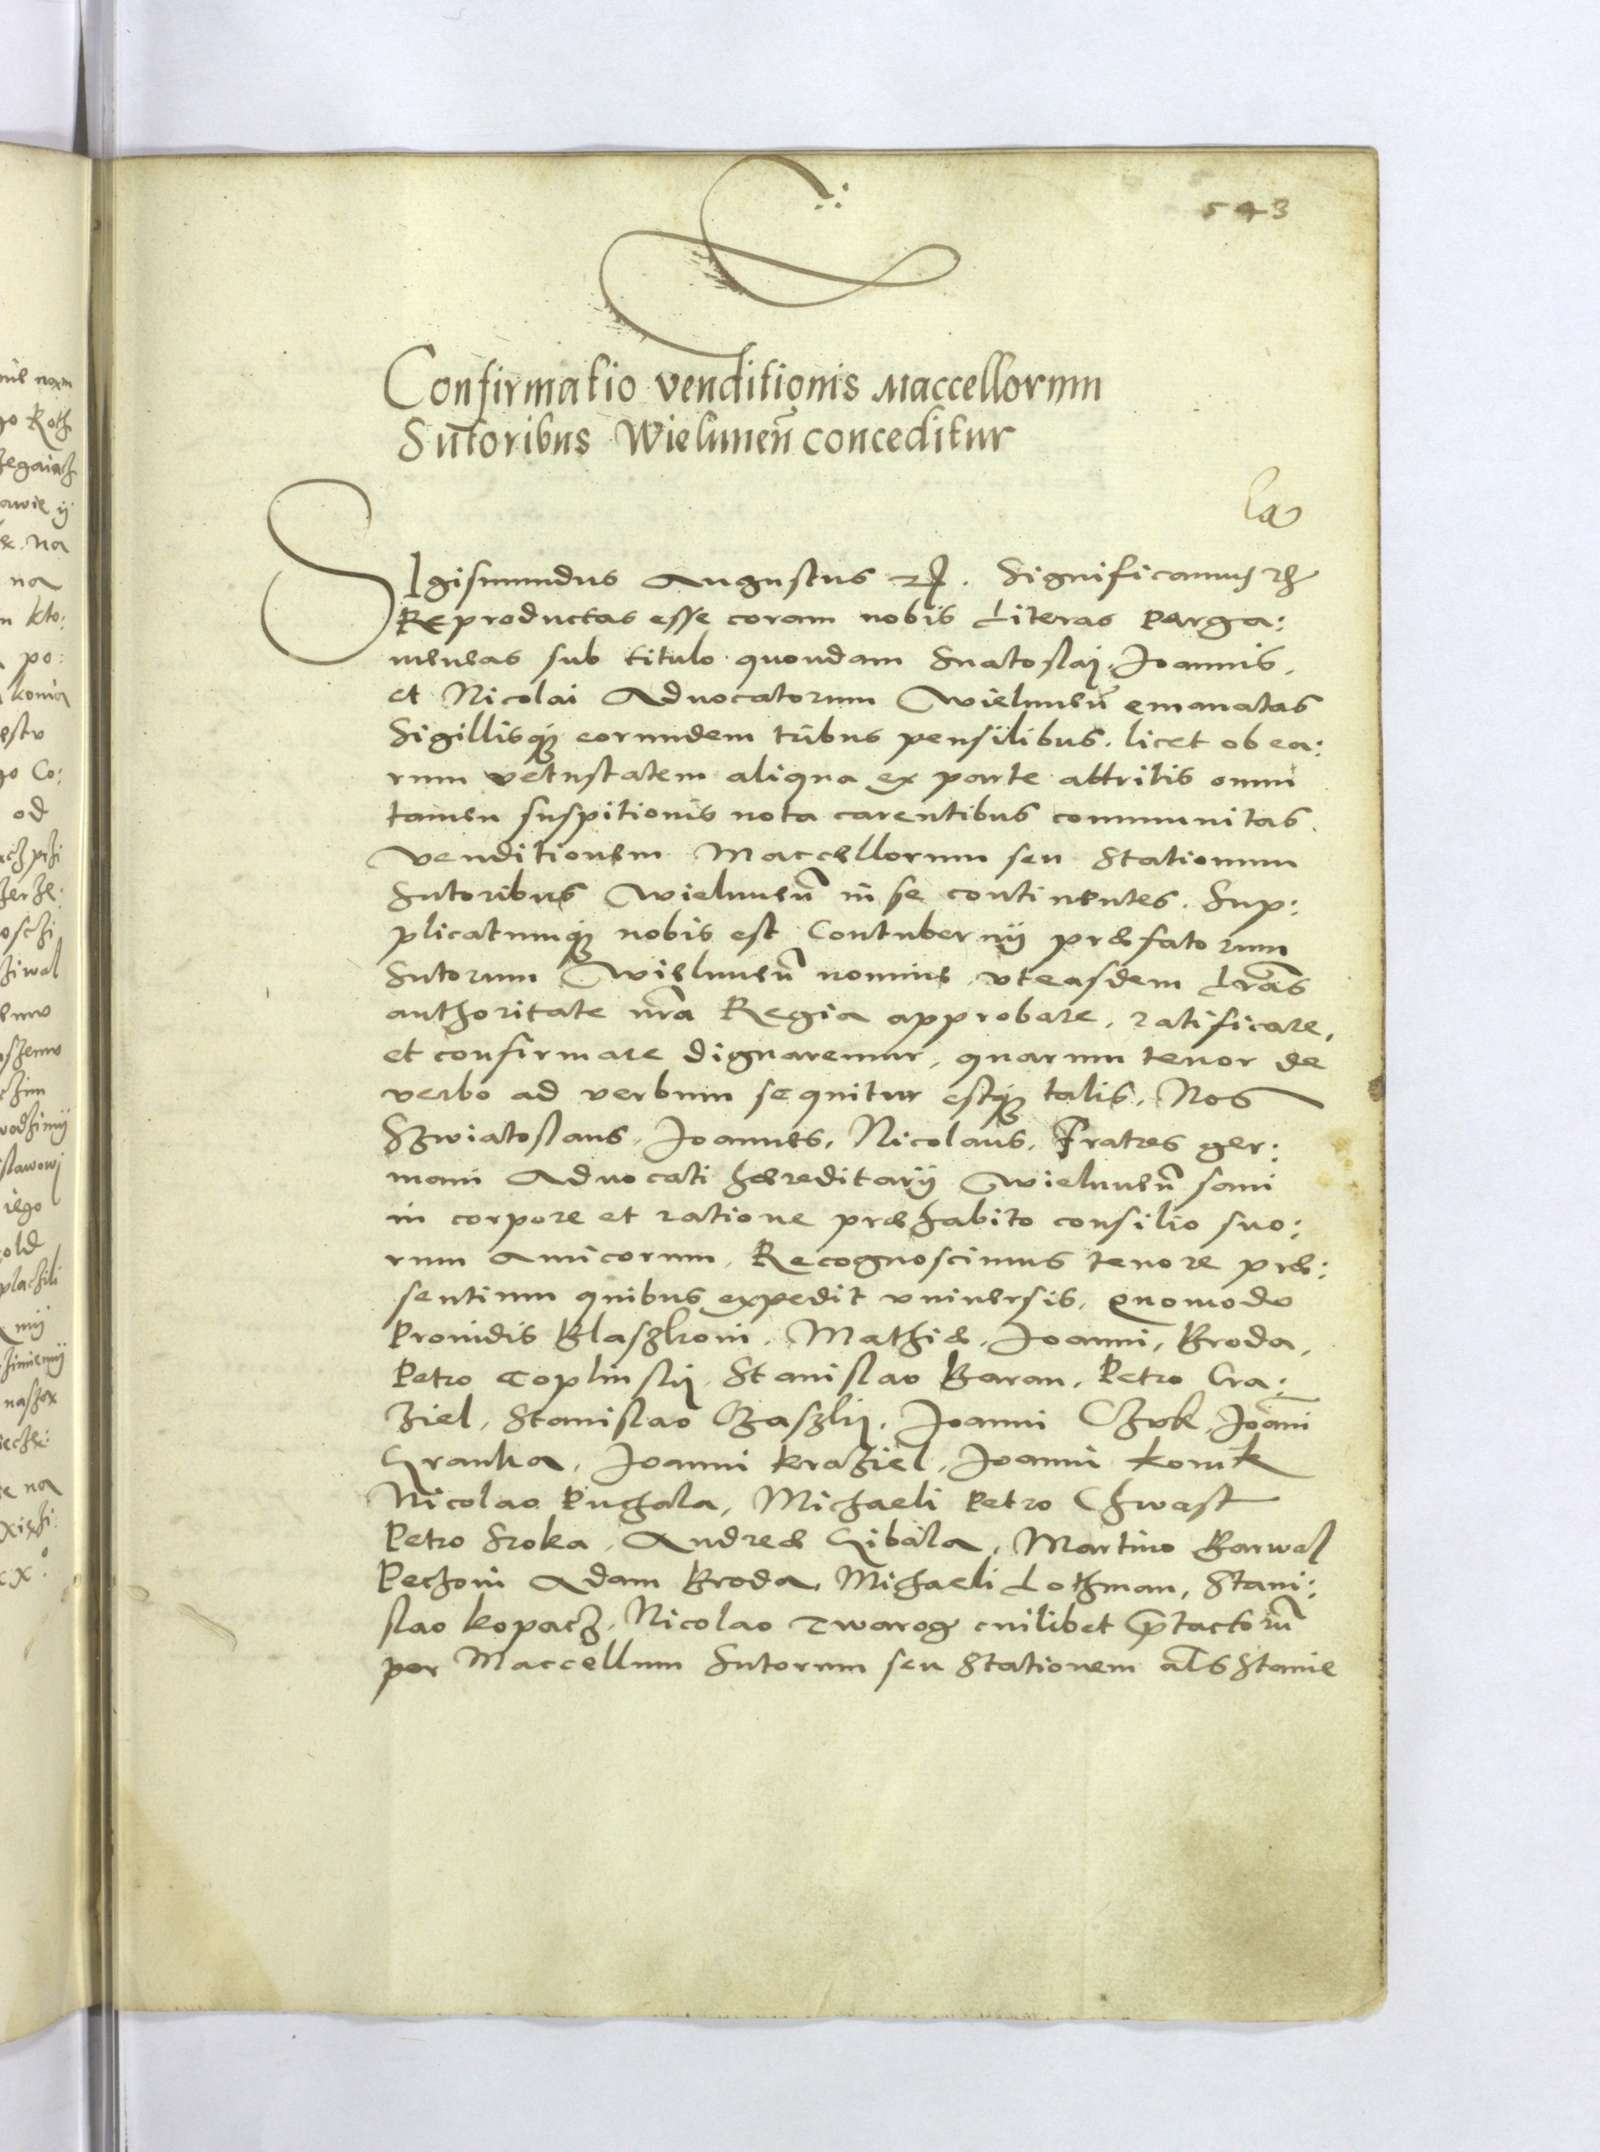 543
Confirmatio venditionis Maccellorum
Sutoribus Wielunen̄ conceditur
Sigismundus Augustus etc. Significamus etc
Reproductas esse coram nobis Literas Perga:
meneas sub titulo quondam Suatoslaij. Joannis.
et Nicolai Aduocatorum Wielunen̄ emanatas
Sigillisqꝫ eorundem tribus pensilibus. licet ob ea:
rum vetustatem aliqua ex parte attritis omni
tamen suspitionis nota carentibus communitas.
Venditionem Maccellorum seu Stationum
Sutoribus Wielunen̄ in se continentes. Sup:
plicatumqꝫ nobis est Contubernij præfatorum
Sutorum Wielunen̄ nomine vt easdem Lr̄as
authoritate nr̄a Regia approbare, ratificare,
et confirmare dignaremur, quarum tenor de
verbo ad verbum sequitur estqꝫ talis. Nos
Szwiatoslaus, Joannes, Nicolaus, Fratres ger:
mani Aduocati hæreditarij Wielunen̄ sani
in corpore et ratione præhabito consilio suo:
rum Amicorum, Recognoscimus tenore præ:
sentium quibus expedit vniuersis, Quomodo
Prouidis Blaszkoni, Mathiæ, Joanni, Broda,
Petro Coplinskij, Stanislao Baran, Petro Cra:
ziel, Stanislao Czaszkij, Joanni Czwk, Joān̄i
Granka, Joanni kraziel, Joanni konik
Nicolao Puchala, Michaeli Petro Chwast
Petro Sroka, Andreæ Gibala, Martino Barwal
Pechoni Adam Broda, Michaeli Lothman, Stani:
slao kopacz, Nicolao Twarog cuilibet p̄tactorū
per Maccellum Sutorum seu Stationem al̄s Stanie